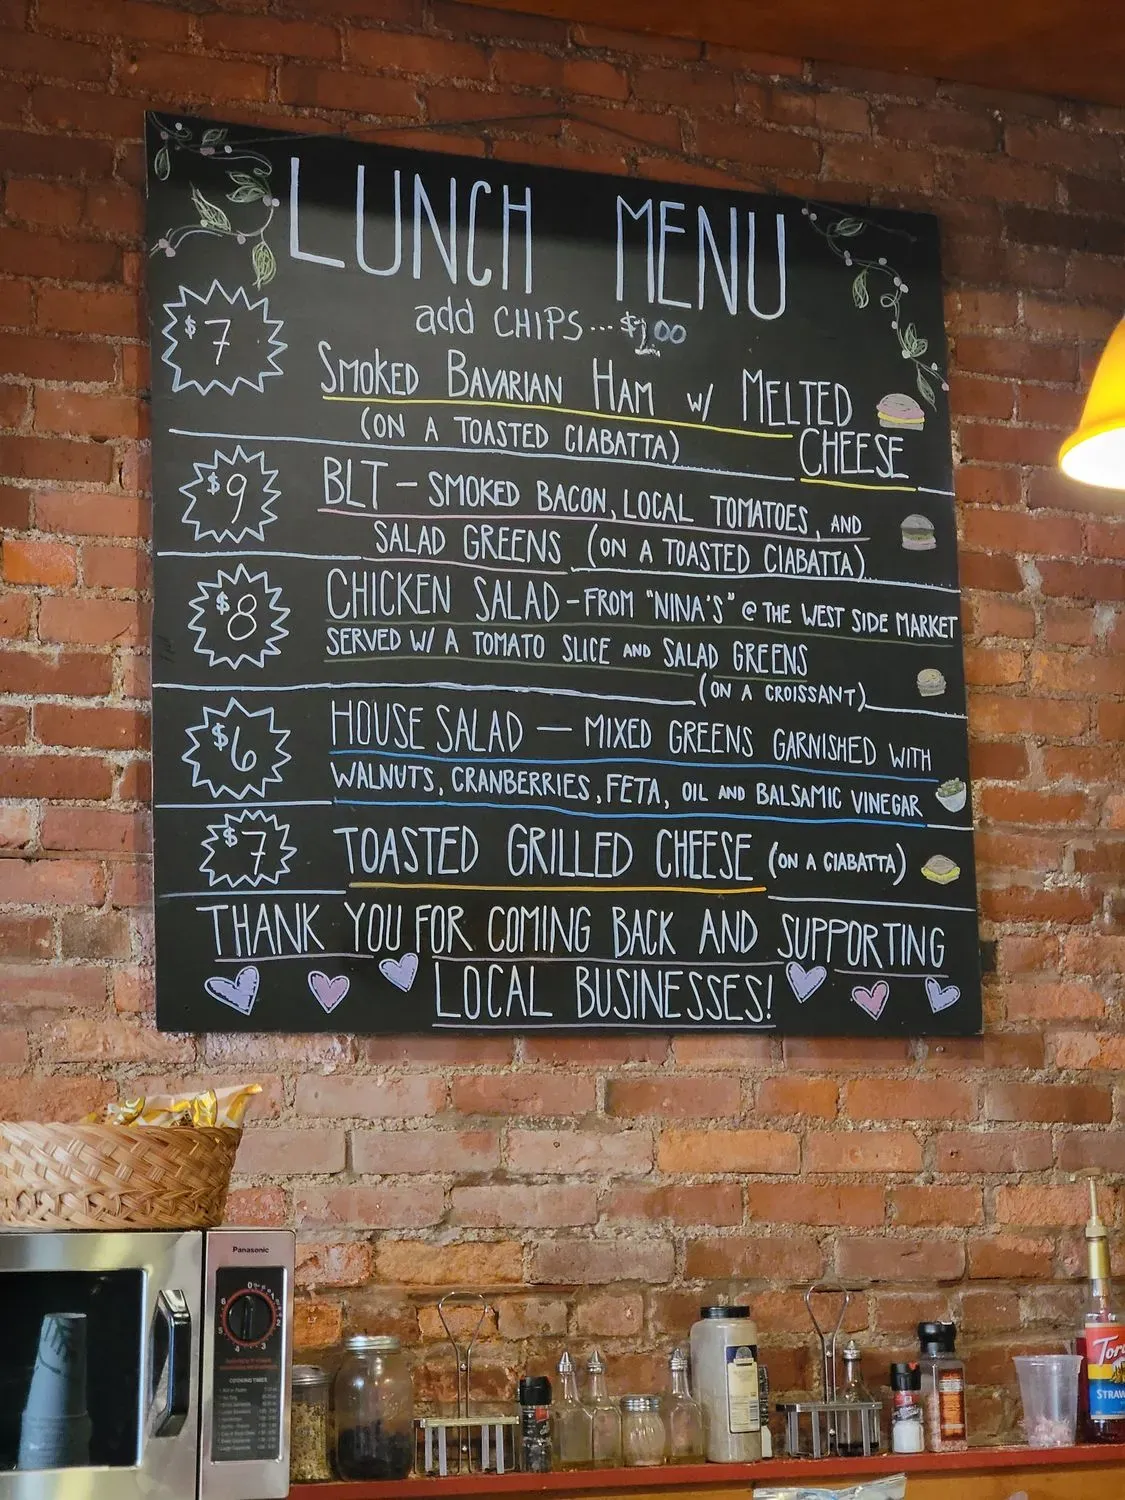 LUNCH MENU
add CHIPS... $1.00
$7
SMOKED BAVARIAN HAM w/ MELTED
CHEESE
(ON A TOASTED CIABATTA)
$9
BLT - SMOKED BACON, LOCAL TOMATOES, AND
SALAD GREENS (ON A TOASTED CIABATTA)
$8
CHICKEN SALAD - FROM "NINA'S" @ THE WEST SIDE MARKET
SERVED W/ A TOMATO SLICE AND SALAD GREENS
(ON A CROISSANT)
$6
HOUSE SALAD — MIXED GREENS GARNISHED WITH
WALNUTS, CRANBERRIES, FETA, OIL AND BALSAMIC VINEGAR
$7
TOASTED GRILLED CHEESE (ON A CIABATTA)
THANK YOU FOR COMING BACK AND SUPPORTING
LOCAL BUSINESSES!
Panasonic
COOKING TIMES
Tor
STRAW